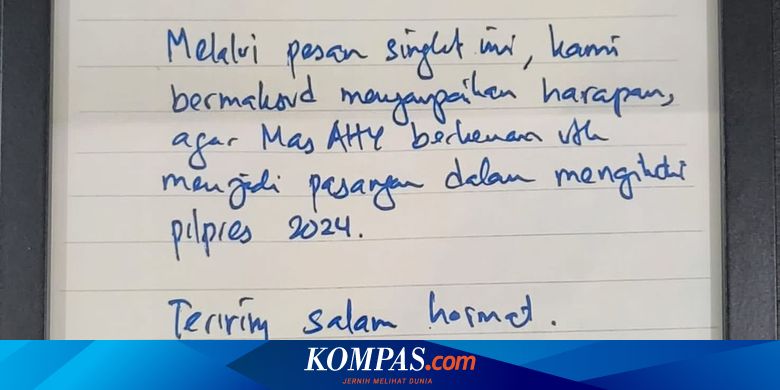 Melalui pesan singkat ini, kami
bermaksud menyampaikan harapan,
agar Mas AHY berkenan utk
menjadi pasangan dalam mengikuti
pilpres 2024.
Teriring salam hormat.
KOMPAS.com
JERNIH MELIHAT DUNIA